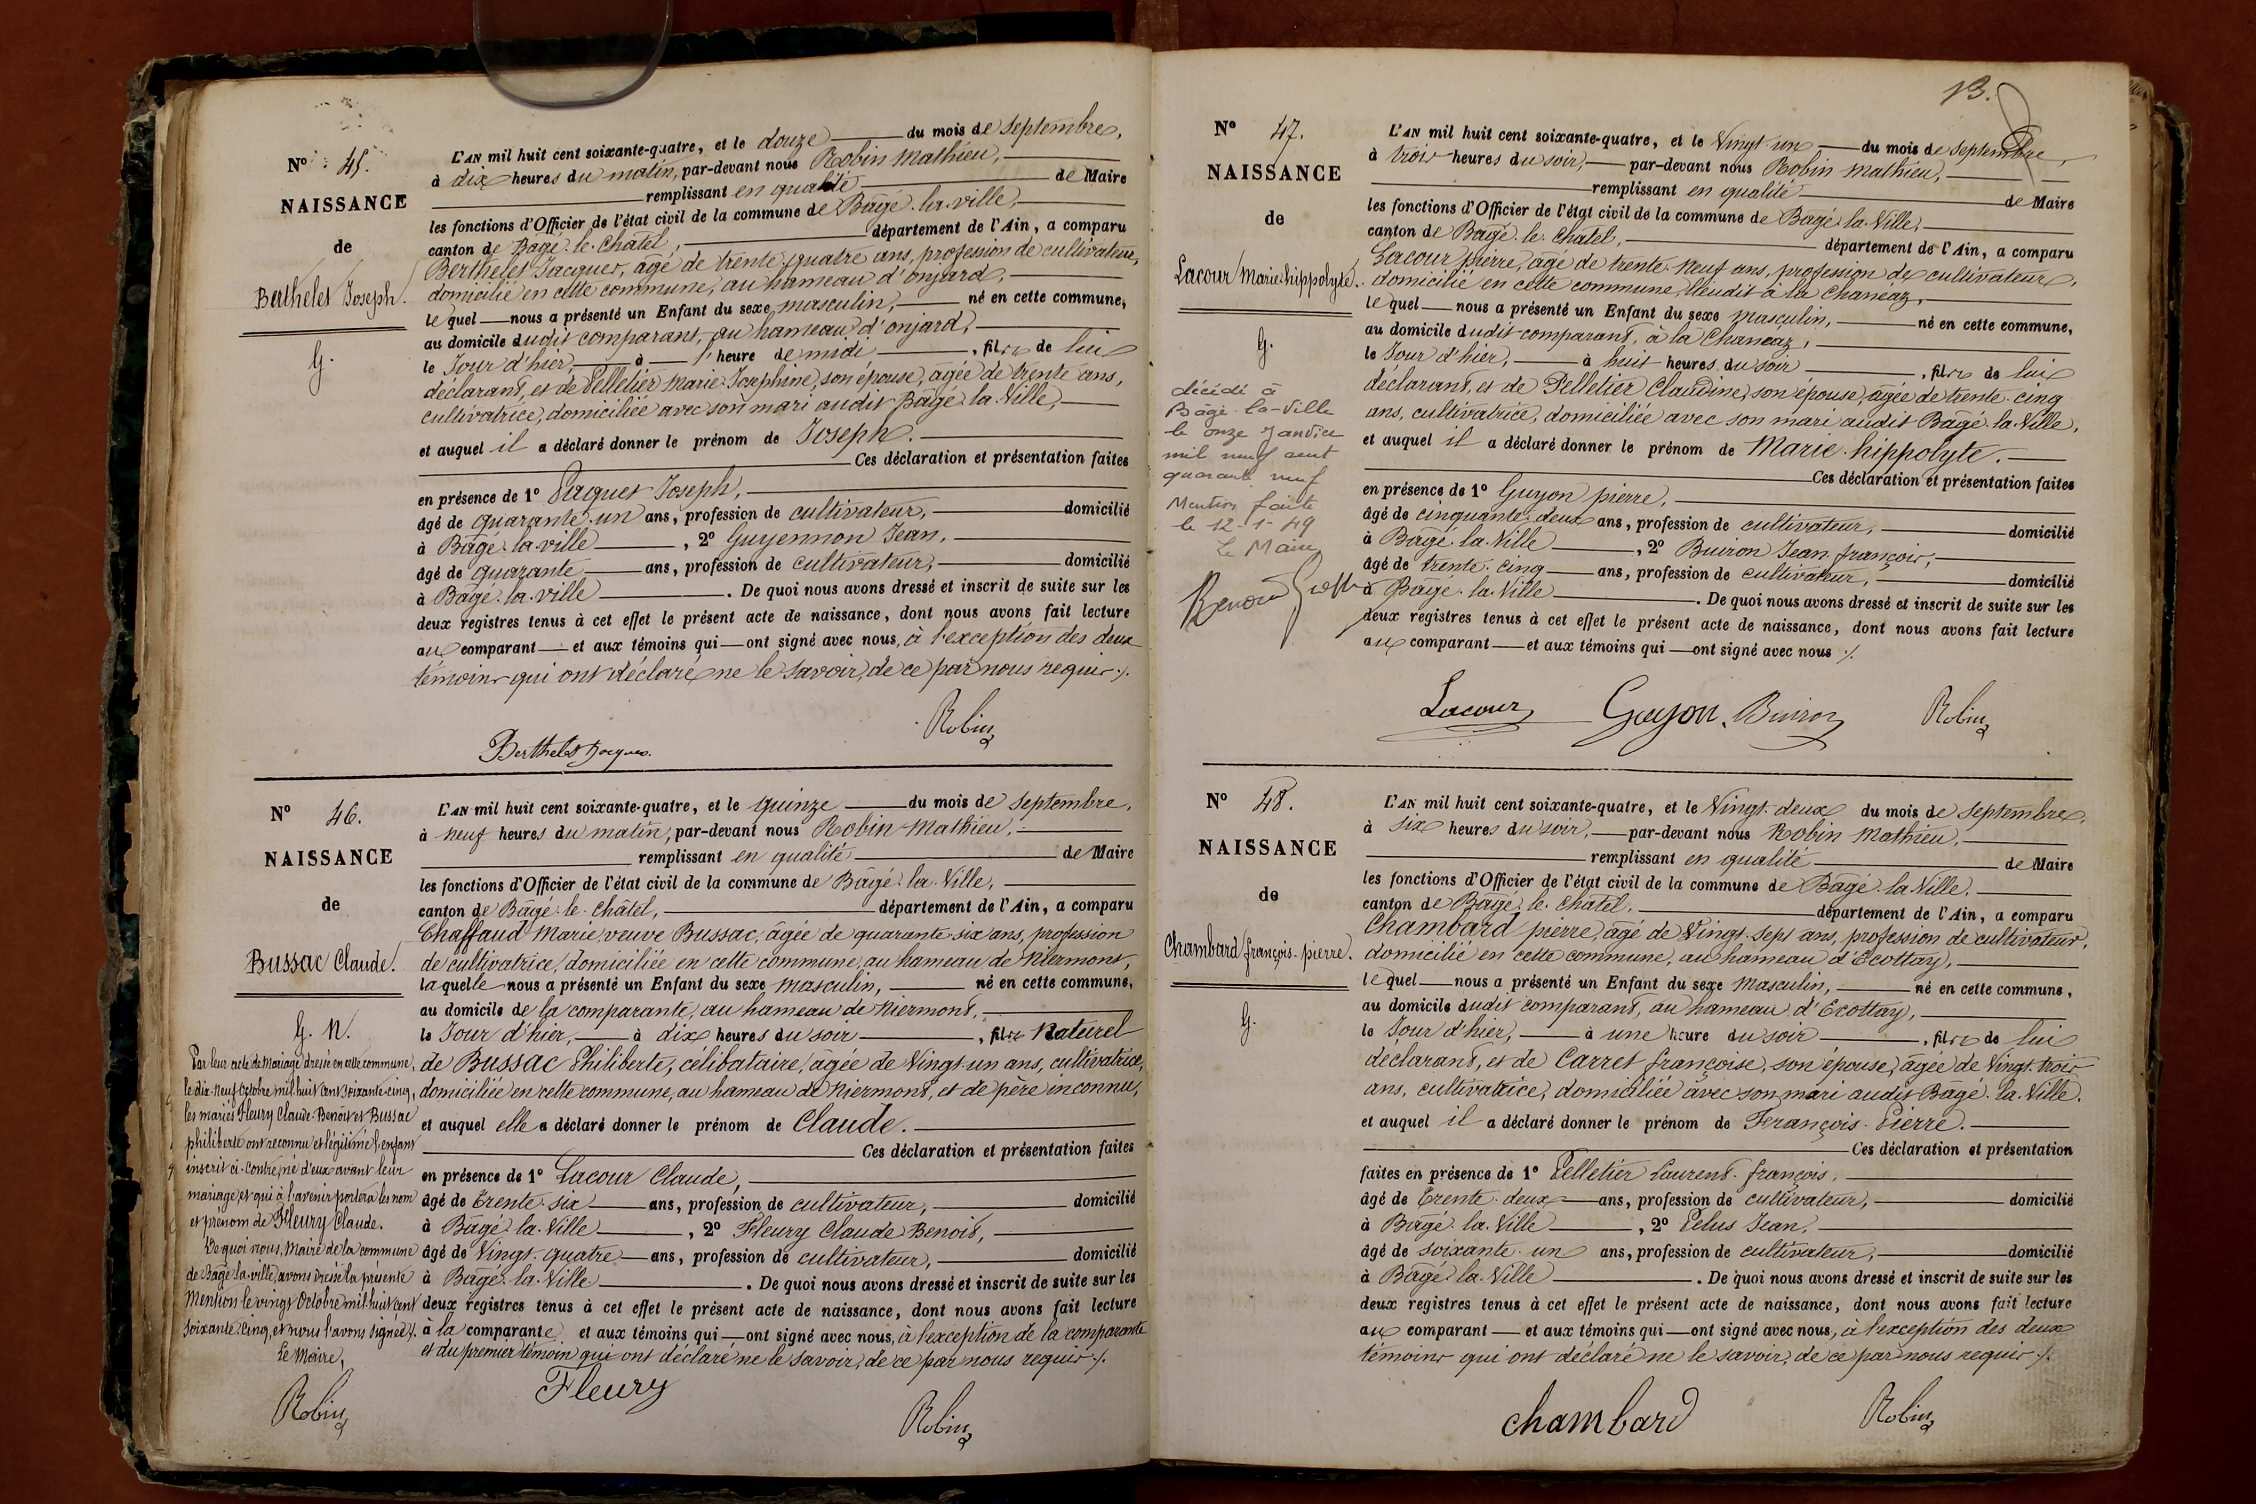 Nº 45.
NAISSANCE
de
Berthelet Joseph.
G.
L'AN mil huit cent soixante-quatre, et le douze du mois de septembre,
à dix heures du matin, par-devant nous Robin Mathieu,
remplissant en qualité de Maire
les fonctions d'Officier de l'état civil de la commune de Bâgé-la-ville,
canton de Bâgé-le-Châtel, département de l'Ain, a comparu
Berthelet Jacques, âgé de trente-quatre ans, profession de cultivateur,
domicilié en cette commune, au hameau d'onjard,
lequel nous a présenté un Enfant du sexe masculin, né en cette commune,
au domicile dudit comparant, au hameau d'onjard,
le Jour d'hier, à l'heure de midi, fils de lui
déclarant, et de Pelletier Marie-Josephine, son épouse, âgée de trente ans,
cultivatrice, domiciliée avec son mari audit Bâgé-la-Ville,
et auquel il a déclaré donner le prénom de Joseph.
Ces déclaration et présentation faites
en présence de 1º Paquet Joseph,
âgé de quarante-un ans, profession de cultivateur, domicilié
à Bâgé-la-ville, 2º Guyennon Jean,
âgé de quarante ans, profession de cultivateur, domicilié
à Bâgé-la-ville. De quoi nous avons dressé et inscrit de suite sur les
deux registres tenus à cet effet le présent acte de naissance, dont nous avons fait lecture
au comparant et aux témoins qui ont signé avec nous, à l'exception des deux
témoins qui ont déclaré ne le savoir, de ce par nous requis ./.
Robin
Berthelet Jacques.
Nº 46.
NAISSANCE
de
Bussac Claude.
G. N.
Par leur acte de Mariage dressé en cette commune,
le dix-neuf Octobre mil huit cent soixante-cinq,
les mariés Fleury Claude-Benoît et Bussac
philiberte ont reconnu et légitimé l'enfant
inscrit ci-contre, né d'eux avant leur
mariage, et qui à l'avenir portera les nom
et prénom de Fleury Claude.
De quoi nous, Maire de la commune
de Bâgé-la-ville, avons dressé la présente
Mention le vingt Octobre mil huit cent
soixante-cinq, et nous l'avons signée ./.
Le Maire,
Robin
L'AN mil huit cent soixante-quatre, et le quinze du mois de septembre,
à neuf heures du matin, par-devant nous Robin Mathieu,
remplissant en qualité de Maire
les fonctions d'Officier de l'état civil de la commune de Bâgé-la-Ville,
canton de Bâgé-le-Châtel, département de l'Ain, a comparu
Chaffaud Marie, veuve Bussac, âgée de quarante-six ans, profession
de cultivatrice, domiciliée en cette commune, au hameau de Niermont,
laquelle nous a présenté un Enfant du sexe masculin, né en cette commune,
au domicile de la comparante, au hameau de Niermont,
le Jour d'hier, à dix heures du soir, fils Naturel
de Bussac Philiberte, célibataire, âgée de Vingt-un ans, cultivatrice,
domiciliée en cette commune, au hameau de Niermont, et de père inconnu,
et auquel elle a déclaré donner le prénom de Claude.
Ces déclaration et présentation faites
en présence de 1º Lacour Claude,
âgé de trente-six ans, profession de cultivateur, domicilié
à Bâgé-la-Ville, 2º Fleury Claude Benoît,
âgé de Vingt-quatre ans, profession de cultivateur, domicilié
à Bâgé-la-Ville. De quoi nous avons dressé et inscrit de suite sur les
deux registres tenus à cet effet le présent acte de naissance, dont nous avons fait lecture
à la comparante et aux témoins qui ont signé avec nous, à l'exception de la comparante
et du premier témoin qui ont déclaré ne le savoir, de ce par nous requis ./.
Fleury
Robin
13.
Nº 47.
NAISSANCE
de
Lacour Marie-hippolyte.
G.
décédé à
Bâgé-la-Ville
le onze Janvier
mil neuf cent
quarante neuf
Mention faite
le 12-1-49
Le Maire
L'AN mil huit cent soixante-quatre, et le Vingt-un du mois de septembre,
à trois heures du soir, par-devant nous Robin Mathieu,
remplissant en qualité de Maire
les fonctions d'Officier de l'état civil de la commune de Bâgé-la-Ville,
canton de Bâgé-le-Châtel, département de l'Ain, a comparu
Lacour pierre, âgé de trente-neuf ans, profession de cultivateur,
domicilié en cette commune, lieudit à la Chanéaz,
lequel nous a présenté un Enfant du sexe masculin, né en cette commune,
au domicile dudit comparant, à la Chanéaz,
le Jour d'hier, à huit heures du soir, fils de lui
déclarant, et de Pelletier Claudine, son épouse, âgée de trente-cinq
ans, cultivatrice, domiciliée avec son mari audit Bâgé-la-Ville,
et auquel il a déclaré donner le prénom de Marie-hippolyte.
Ces déclaration et présentation faites
en présence de 1º Guyon pierre,
âgé de cinquante-deux ans, profession de cultivateur, domicilié
à Bâgé-la-Ville, 2º Buiron Jean-françois,
âgé de trente-cinq ans, profession de cultivateur, domicilié
à Bâgé-la-Ville. De quoi nous avons dressé et inscrit de suite sur les
deux registres tenus à cet effet le présent acte de naissance, dont nous avons fait lecture
au comparant et aux témoins qui ont signé avec nous ./.
Lacour Guyon. Buiron Robin
Nº 48.
NAISSANCE
de
Chambard françois-pierre.
G.
L'AN mil huit cent soixante-quatre, et le Vingt-deux du mois de septembre,
à six heures du soir, par-devant nous Robin Mathieu,
remplissant en qualité de Maire
les fonctions d'Officier de l'état civil de la commune de Bâgé-la-Ville,
canton de Bâgé-le-Châtel, département de l'Ain, a comparu
Chambard pierre, âgé de Vingt-sept ans, profession de cultivateur,
domicilié en cette commune, au hameau d'Ecottay,
lequel nous a présenté un Enfant du sexe Masculin, né en cette commune,
au domicile dudit comparant, au hameau d'Ecottay,
le Jour d'hier, à une heure du soir, fils de lui
déclarant, et de Carret françoise, son épouse, âgée de Vingt-trois
ans, cultivatrice, domiciliée avec son mari audit Bâgé-la-Ville.
et auquel il a déclaré donner le prénom de François-Pierre.
Ces déclaration et présentation
faites en présence de 1º Pelletier Laurent-françois,
âgé de trente-deux ans, profession de cultivateur, domicilié
à Bâgé-la-Ville, 2º Pelus Jean,
âgé de soixante-un ans, profession de cultivateur, domicilié
à Bâgé-la-Ville. De quoi nous avons dressé et inscrit de suite sur les
deux registres tenus à cet effet le présent acte de naissance, dont nous avons fait lecture
au comparant et aux témoins qui ont signé avec nous, à l'exception des deux
témoins qui ont déclaré ne le savoir, de ce par nous requis ./.
chambard
Robin